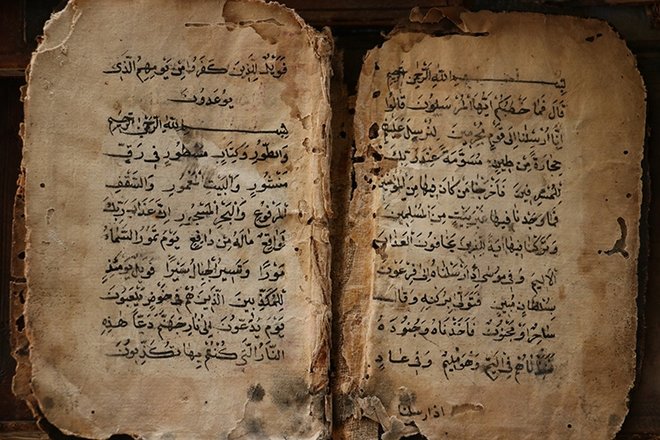 بسم الله الرحمن الرحيم
قال فما خطبكم ايها المرسلون قالوا
انا ارسلنا الى قوم مجرمين لنرسل عليهم
حجارة من طين مسومة عند ربك
للمسرفين فاخرجنا من كان فيها من المؤمنين
فما وجدنا فيها غير بيت من المسلمين
وتركنا فيها اية للذين يخافون العذاب
الاليم وفي موسى اذ ارسلناه الى فرعون
بسلطان مبين فتولى بركنه وقال
ساحر او مجنون فاخذناه وجنوده
فنبذناهم في اليم وهو مليم وفي عاد
اذ ارسلنا
فويل للذين كفروا من يومهم الذي
يوعدون
بسم الله الرحمن الرحيم
والطور وكتاب مسطور في رق
منشور والبيت المعمور والسقف
المرفوع والبحر المسجور ان عذاب ربك
لواقع ماله من دافع يوم تمور السماء
مورا وتسير الجبال سيرا فويل يومئذ
للمكذبين الذين هم في خوض يلعبون
يوم يدعون الى نار جهنم دعا هذه
النار التي كنتم بها تكذبون